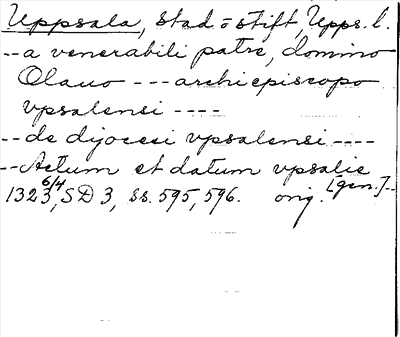 Uppsala, stad o stift, Upps. l.
-- a venerabili patre, domino
Olauo --- archiepiscopo
vpsalensi ----
-- de dijocesi vpsalensi ----
-- Actum et datum vpsalie
1323 6/4, SD 3, ss. 595, 596. orig. [gen.] --